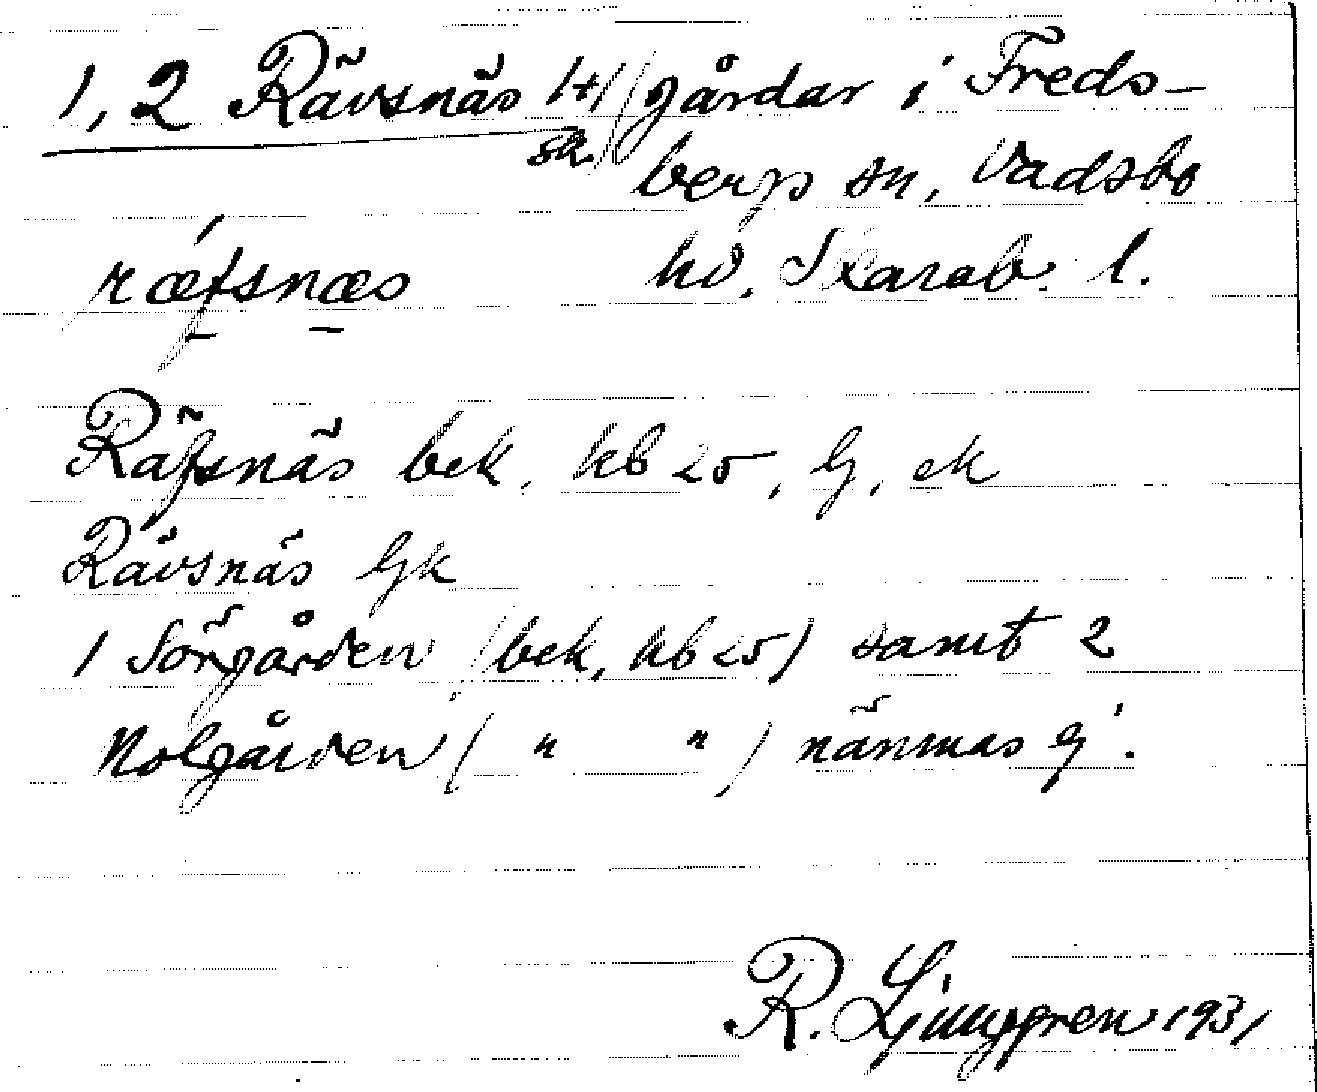 1, 2 Rävsnäs 1+1 gårdar i Freds-
sk. bergs sn, Vadsbo
rǽfsnæs hd. Skarab. l.
Räfsnäs bek, hb 25, G, ek
Rävsnäs Gk
1 Sörgården (bek, hb 25) samt 2
Nolgården ( " " ) nämnas g'.
R. Ljunggren 1931